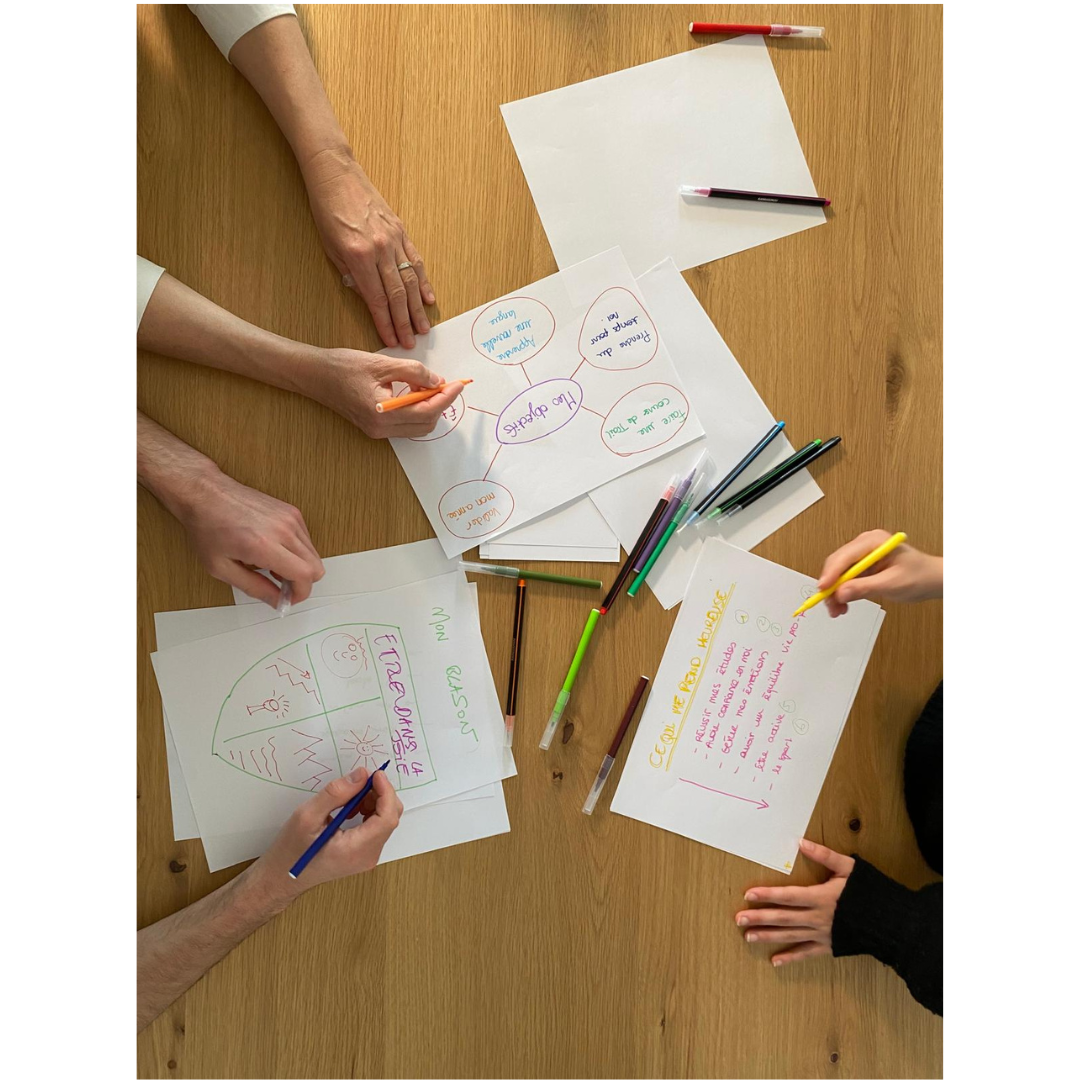 Mes objectifs
Apprendre
une nouvelle
langue
Prendre du
temps pour
moi.
Faire une
course de Trail
Valider
mon année
MON BLASON
ETRE DANS LA
JOIE
CE QUI ME REND HEUREUSE
- RÉUSSIR MES ÉTUDES
- AVOIR CONFIANCE EN MOI
- GÉRER MES ÉMOTIONS
- avoir un équilibre vie
- être active
- le sport